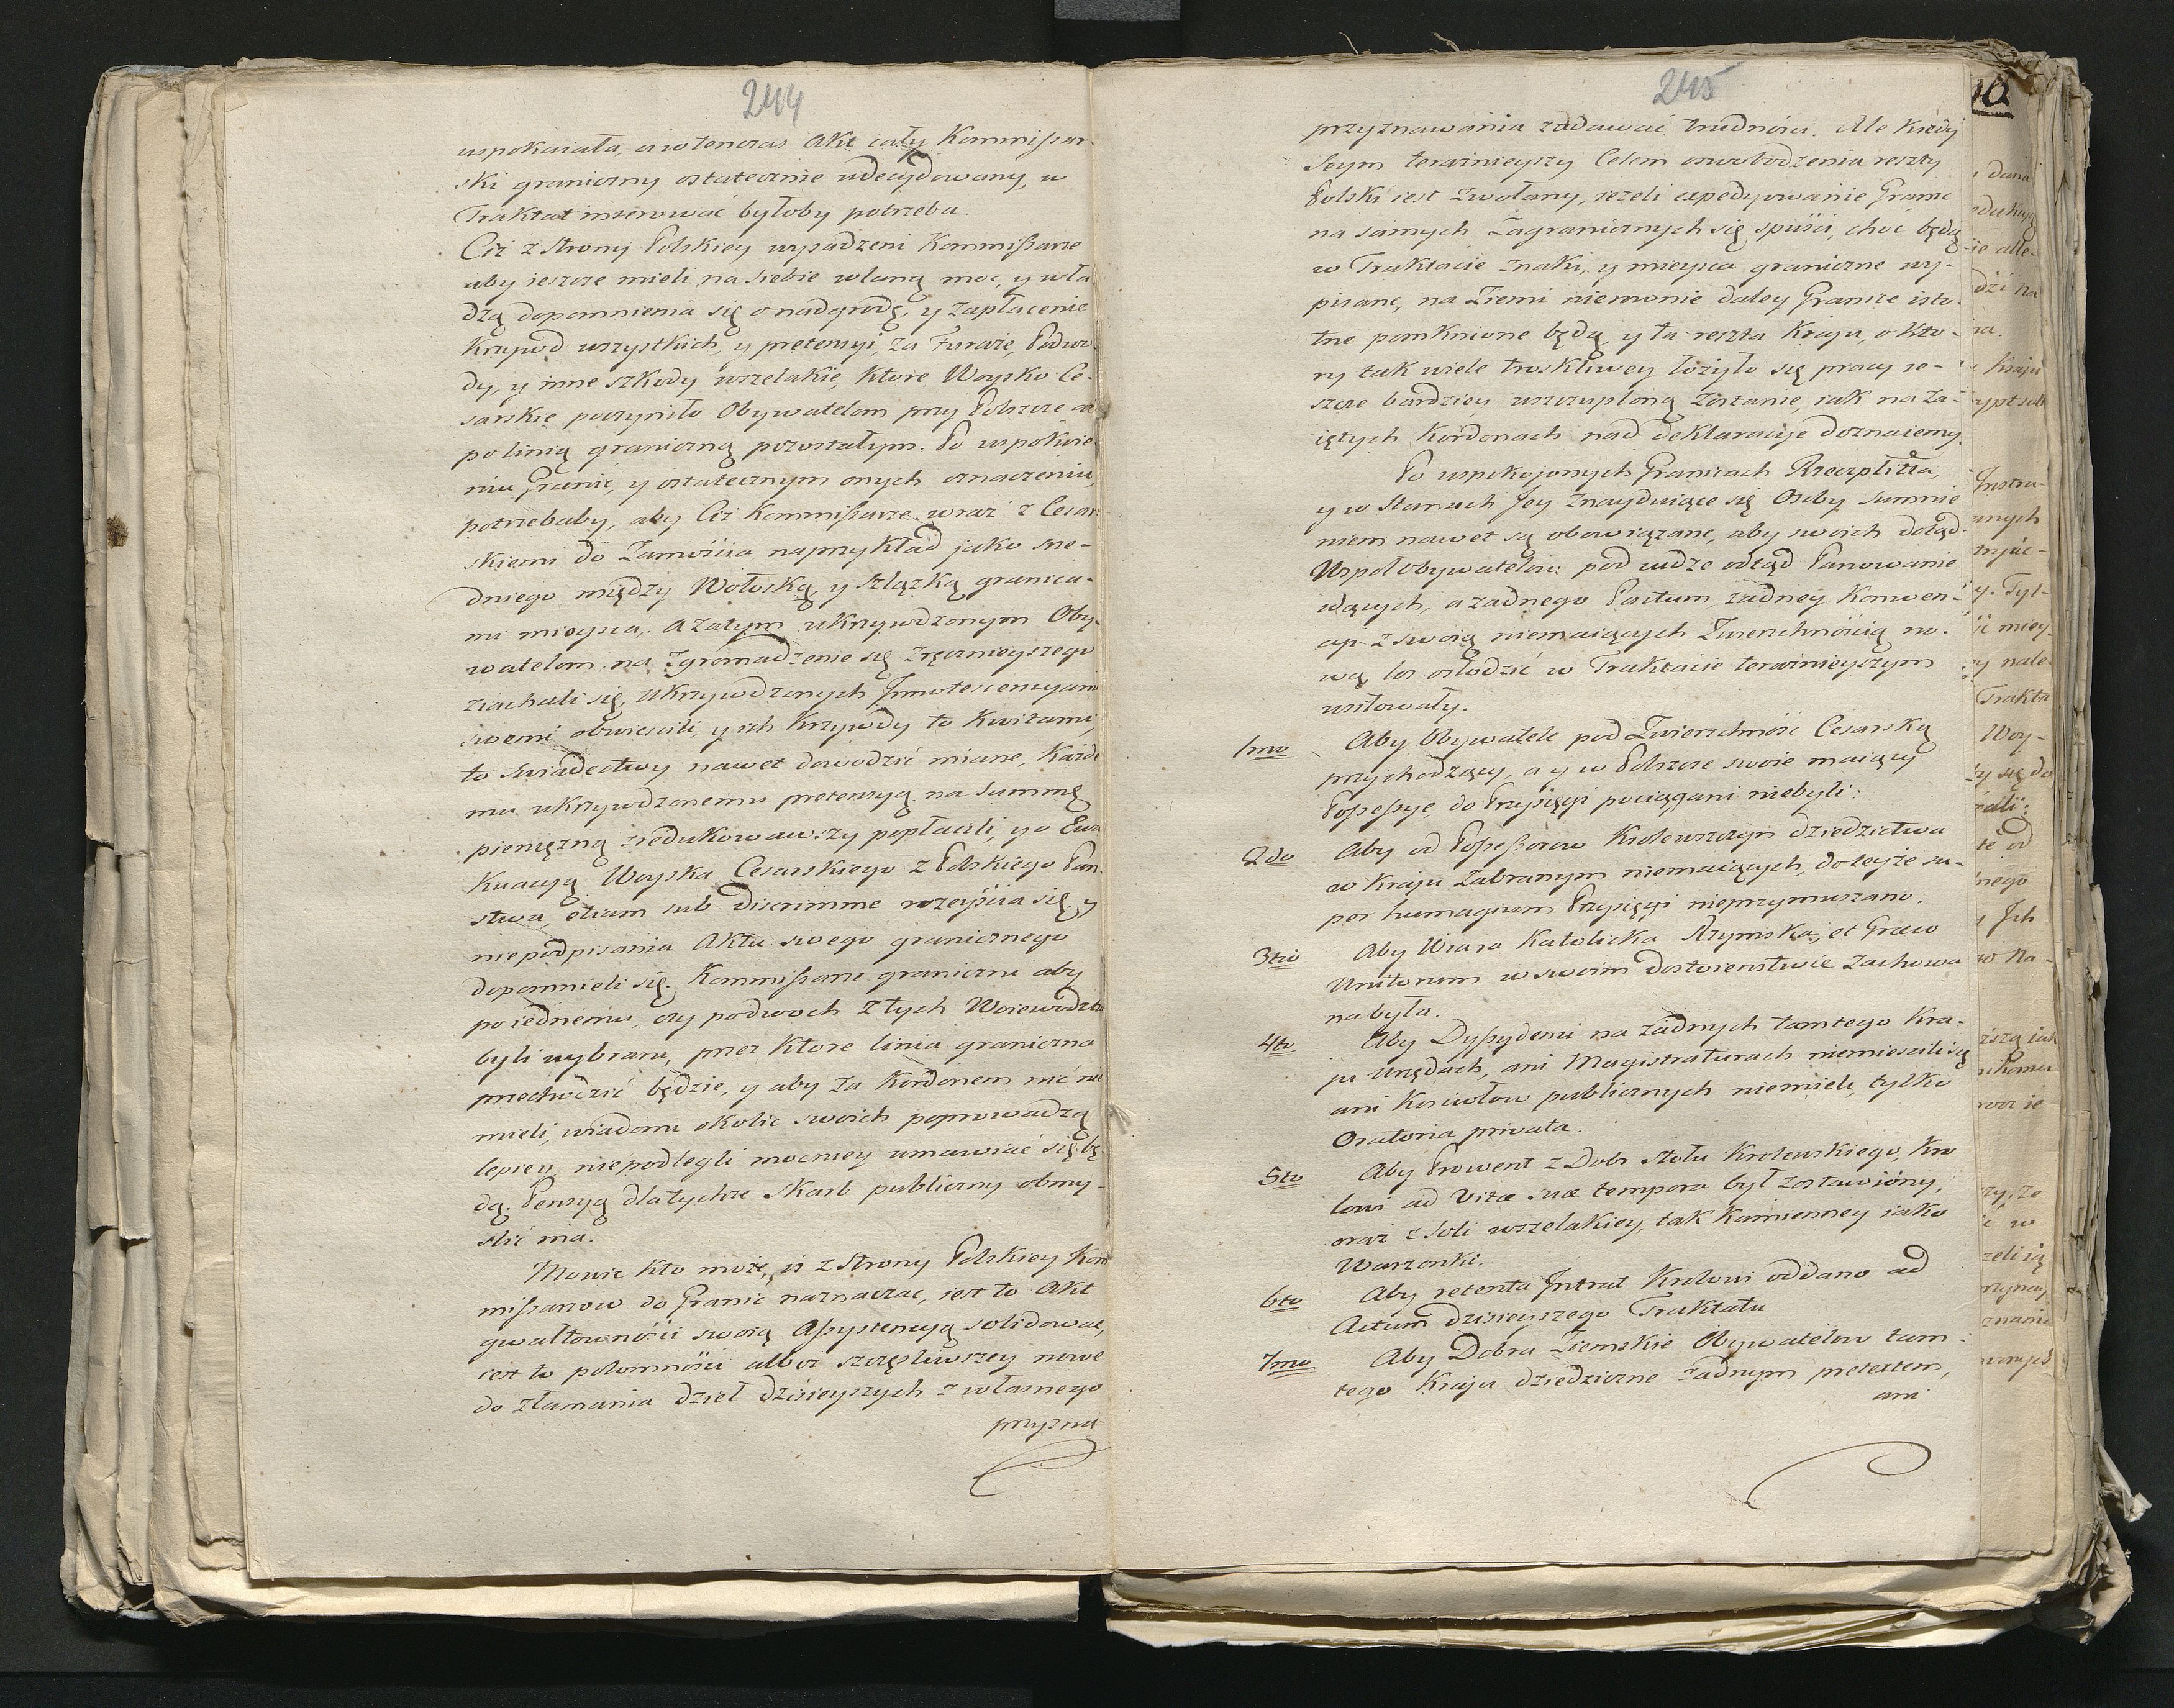 244
uspokaiała, a wtenczas Akt cały Kommissar-
ski graniczny ostatecznie udecydowany, w
Traktat inserować byłoby potrzeba.
Ciż z Strony Polskiey wysadzeni Kommissarze
aby ieszcze mieli na siebie wlaną moc, y wła
dzą dopomnienia się o nadgrodę, y zapłacenie
Krzywd wszystkich, y pretensyi, za Furaże, Podwo-
dy, y inne szkody wszelakie, Ktore Woysko Ce-
sarskie poczyniło Obywatelom przy Polszcze
po linią graniczną pozostałym. Po uspokoie
niu Granic, y ostatecznym onych oznaczeniu,
potrzebaby, aby Ciż Kommissarze wraz z Cesar
skiemi do Zamościa naprzykład jako sre-
dniego między Wołoską, y Szląską granica-
mi mieysca, a zatym ukrzywdzonym Oby-
watelom na zgromadzenie się zręcznieyszego
ziachali się, ukrzywdzonych Innotescencyami
swemi obwiescili, y ich Krzywdy to Kwitami,
to swiadectwy nawet dowodzić miane, Każde
mu ukrzywdzonemu pretensyą na summę
pieniężną zredukowawszy popłacili, y o Ewa
Kuacyą Woyska Cesarskiego z Polskiego Pan
stwa, etiam sub discrimine rozeyscia się, y
niepodpisania Aktu swego granicznego
dopomnieli się. Kommissarze graniczni aby
po iednemu, czy po dwoch z tych Woiewodztw
byli wybrani, przez Ktore linia graniczna
przechodzić będzie, y aby za Kordonem nic nie
mieli, wiadomi okolic swoich poprowadzą
lepiey, niepodlegli mocniey umawiać się bę-
dą. Pensyą dla tychże Skarb publiczny obmy-
slić ma.
Mowić kto może, iż z Strony Polskiey Kom
missarzow do Granic naznaczać, iest to Akt
gwałtowności swoią Assystencyą solidować,
iest to potomności alboż szczęsliwszey nowe
do złamania dzieł dzisieyszych z własnego
przyzna-
245
przyznawania zadawać trudności. Ale Kiedy
Seym teraźnieyszy Celem oswobodzenia reszty
Polski iest zwołany, ieżeli expedyowanie Granic
na samych Zagranicznych się spuści, choć będą
w Traktacie znaki, y mieysca graniczne wy-
pisane, na Ziemi niemnie daley Granice isto-
tne pomknione będą, y ta reszta Kraju, o Kto-
ry tak wiele troskliwey łożyło się pracy ie-
szcze bardziey uszczuploną zostanie, iak na Za-
iętych Kordonach nad deklaracye doznaiemy.
Po uspokojonych Granicach Rzeczplitta,
y w Stanach Jey znayduiące się Osoby summie
niem nawet są obowiązane, aby swoich dotąd-
Wspolobywatelow pod cudze odtąd Panowanie
idących, a żadnego Pactum, żadney Konwen-
cyi z swoią niemaiących Zwierzchnością no-
wą los osłodzić w Traktacie teraźnieyszym
usiłowały.
1mo Aby Obywatele pod Zwierzchność Cesarską
przychodzący, a y w Polszcze swoie maiący
Possessye, do Przysięgi pociągani niebyli:
2do Aby od Possessorow Krolewszczyzn dziedzictwa
w Kraju Zabranym niemaiących, do teyże su-
per humagium Przysięgi nieprzymuszano.
3tio Aby Wiara Katolicka Rzymska, et Graeco
Unitorum w swoim dostoienstwie zachowa
na była.
4to Aby Dyssydenci na żadnych tamtego Kra-
ju Urzędach, ani Magistraturach niemiescili się
ani Kosciołow publicznych niemieli, tylko
Oratoria privata.
5to Aby Prowent z Dobr stołu Krolewskiego, Kro
lowi ad vitae suae tempora był zostawiony,
oraz z soli wszelakiey, tak Kamienney iako
Warzonki.
6to Aby retenta Intrat Krolowi oddano ad
Actum dzisieyszego Traktatu
7mo Aby Dobra Ziemskie Obywatelow tam-
tego Kraju dziedziczne żadnym pretextem,
ani